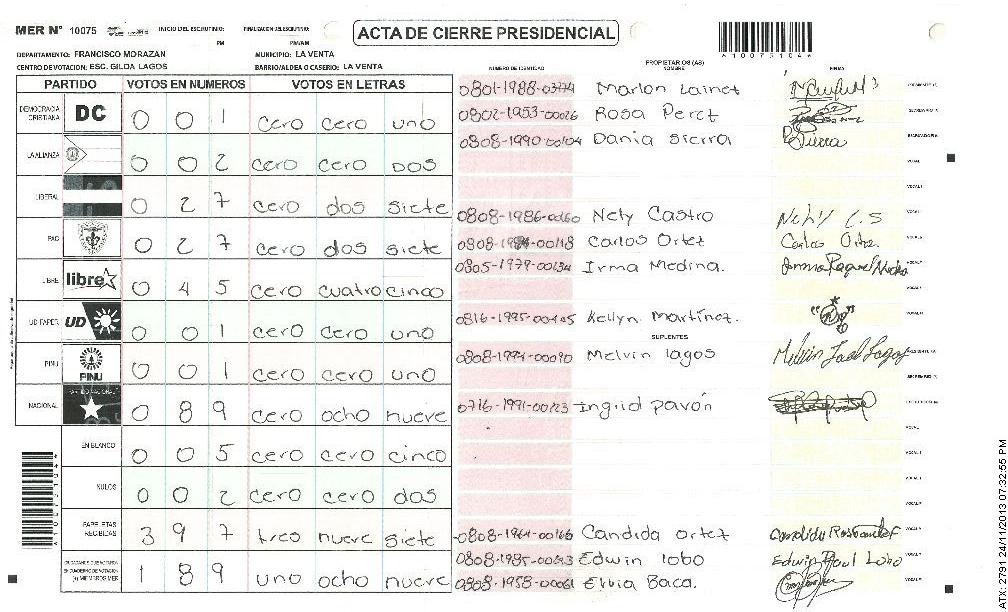 MER N° 10075 INICIO DEL ESCRUTINIO: PM FINALIZACION DEL ESCRUTINIO: PM/AM
ACTA DE CIERRE PRESIDENCIAL
*10075104*
DEPARTAMENTO: FRANCISCO MORAZAN MUNICIPIO: LA VENTA
CENTRO DE VOTACION: ESC. GILDA LAGOS BARRIO/ALDEA O CASERIO: LA VENTA
PARTIDO VOTOS EN NUMEROS VOTOS EN LETRAS
DEMOCRACIA CRISTIANA DC 0 0 1 cero cero uno
LA ALIANZA 0 0 2 cero cero dos
LIBERAL 0 2 7 cero dos siete
PAC 0 2 7 cero dos siete
LIBRE libre 0 4 5 cero cuatro cinco
UD-FAPER UD 0 0 1 cero cero uno
PINU PINU 0 0 1 cero cero uno
NACIONAL PARTIDO NACIONAL 0 8 9 cero ocho nueve
EN BLANCO 0 0 5 cero cero cinco
NULOS 0 0 2 cero cero dos
PAPELETAS RECIBIDAS 3 9 7 tres nueve siete
(+) MIEMBROS MER 1 8 9 uno ocho nueve
NUMERO DE IDENTIDAD PROPIETARIOS (AS) NOMBRE FIRMA
0801-1988-03774 Marlon Lainez
0802-1953-00026 Rosa Perez
0808-1990-00104 Dania Sierra
0808-1986-00160 Nely Castro Nely C.S
Carlos Ortez Carlos Ortez
0805-1979-00134 Irma Medina.
Kellyn Martínez.
SUPLENTES
0808-1994-00090 Melvin lagos
0716-1991-00123 Ingrid pavón
Candida ortez
Edwin lobo
0808-1958-00061 Elvia Baca.
ATX: 2791 24/11/2013 07:32:55 PM